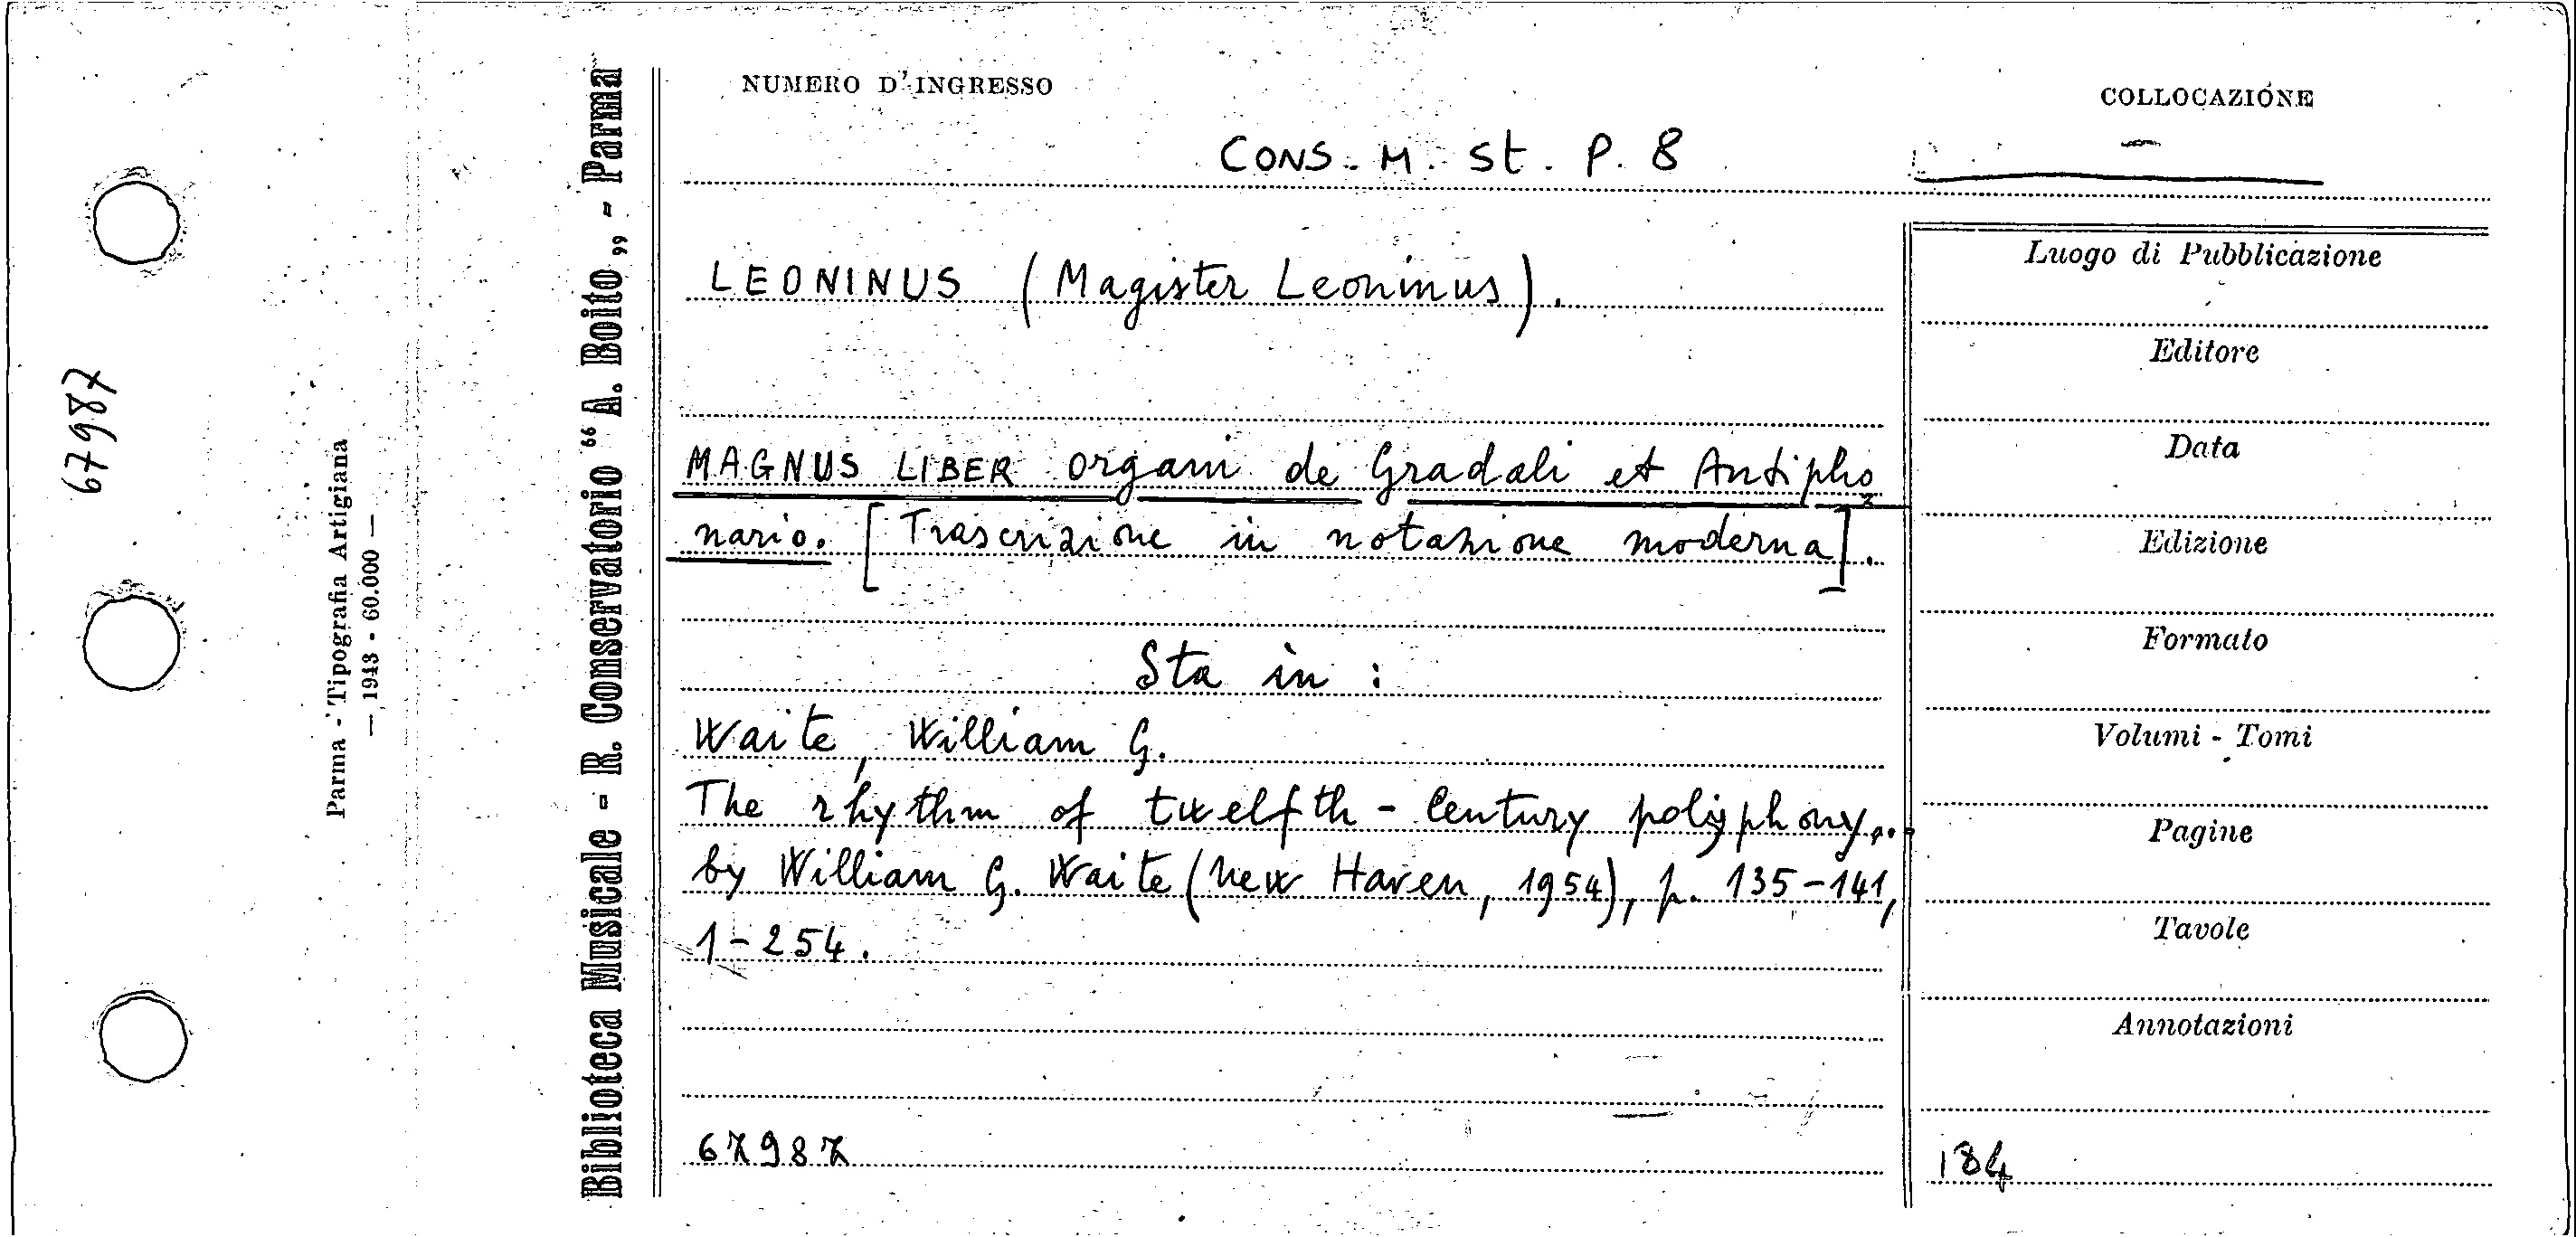 67987
Parma - Tipografia Artigiana
— 1943 - 60.000 —
Biblioteca Musicale - R. Conservatorio “A. Boito„ - Parma
NUMERO D'INGRESSO
COLLOCAZIONE
CONS. M. St. P. 8
LEONINUS (Magister Leoninus).
MAGNUS LIBER organi de Gradali et Antipho
nario. [Trascrizione in notazione moderna].
Sta in :
Waite, William G.
The rhythm of twelfth-Century polyphony...
by William G. Waite (New Haven, 1954), p. 135-141,
1-254.
67987
Luogo di Pubblicazione
Editore
Data
Edizione
Formato
Volumi - Tomi
Pagine
Tavole
Annotazioni
184